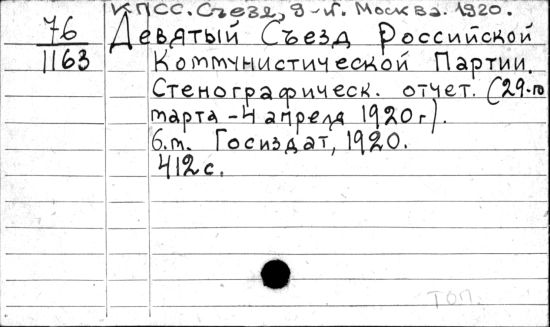 КПСС. Съезд, 9-й. Москва. 1920.
76
1163
Девятый Съезд Российской
Коммунистической Партии.
Стенографическ. отчет. (29-го
марта - 4 апреля 1920 г).
б.м. Госиздат, 1920.
412 с.
топ.